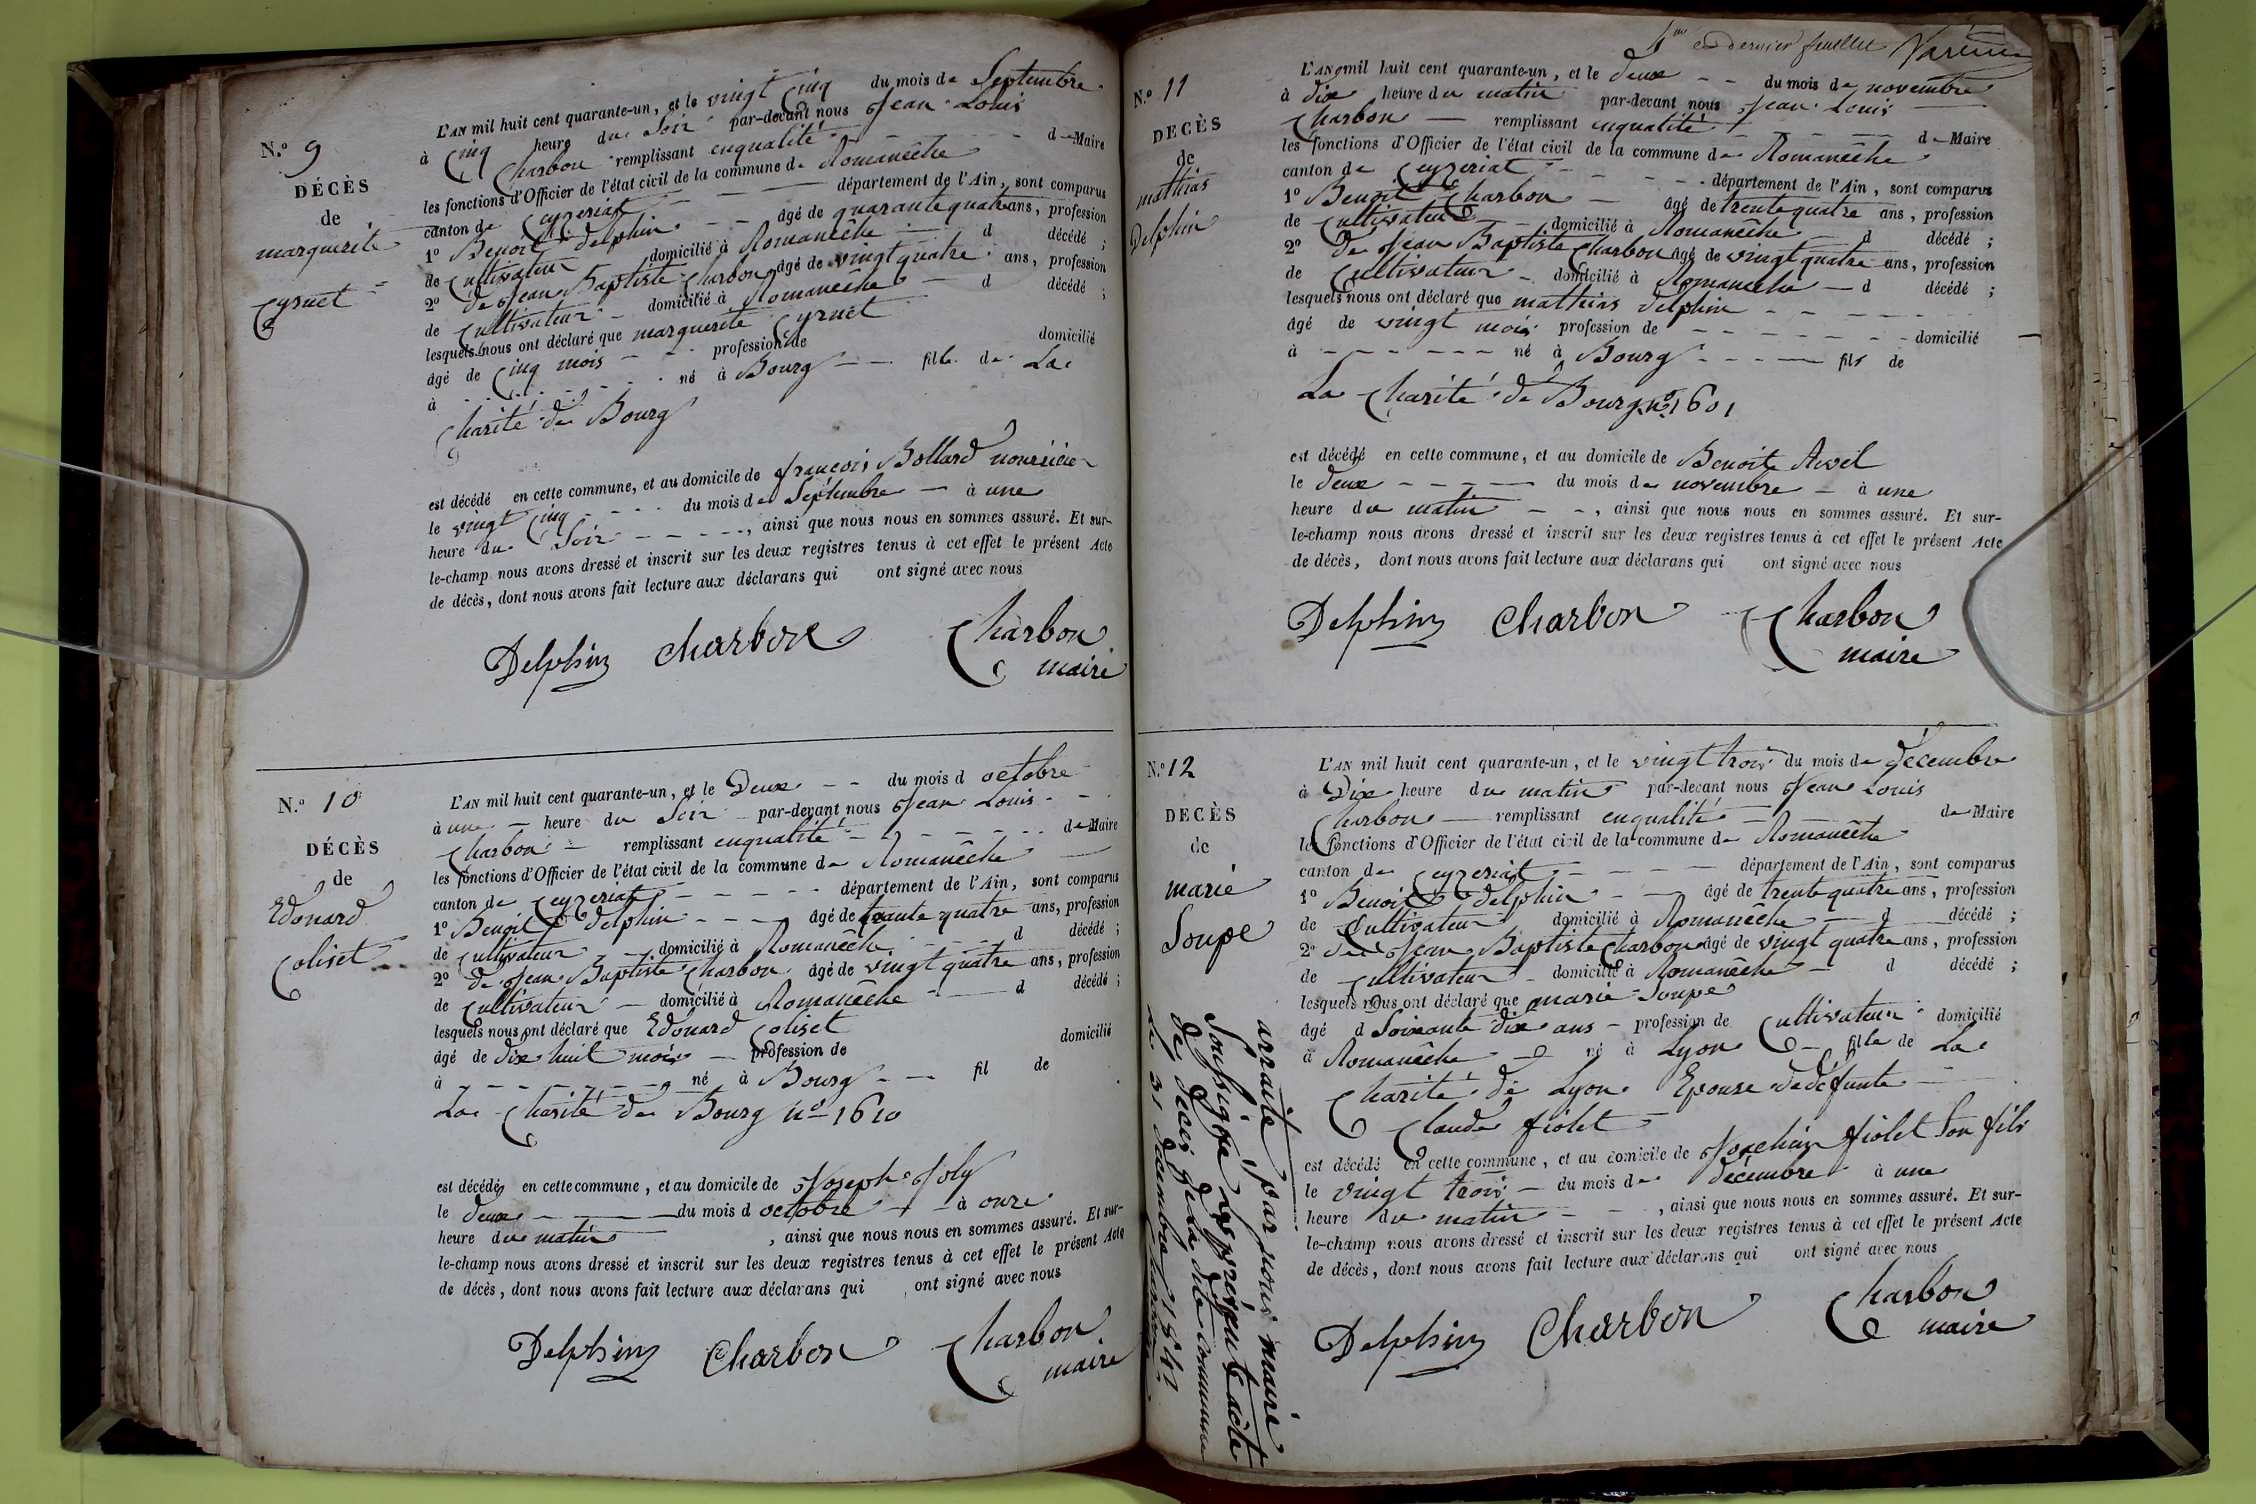 N.o 9
DÉCÈS
de
marguerite
Cyruet
L'AN mil huit cent quarante-un, et le vingt Cinq du mois de Septembre
à Cinq heure du Soir par-devant nous Jean Louis
Charbon remplissant enqualité de Maire
les fonctions d'Officier de l'état civil de la commune de Romanêche
canton de Ceyzeriat département de l'Ain, sont comparus
1o Benoit Delphin âgé de quarantequatre ans, profession
de Cultivateur domicilié à Romanêche d décédé ;
2o de Jean Baptiste Charbon âgé de vingtquatre ans, profession
de Cultivateur domicilié à Romanêche d décédé ;
lesquels nous ont déclaré que marguerite Cyruet
âgé de Cinq mois profession de domicilié
à né à Bourg fille de La
Charité de Bourg
est décédé en cette commune, et au domicile de françois Bollard nourricier
le vingt Cinq du mois de Septembre à une
heure du Soir, ainsi que nous nous en sommes assuré. Et sur-
le-champ nous avons dressé et inscrit sur les deux registres tenus à cet effet le présent Acte
de décès, dont nous avons fait lecture aux déclarans qui ont signé avec nous
Delphin Charbon Charbon
maire
N.o 10
DÉCÈS
de
Edouard
Coliset
L'AN mil huit cent quarante-un, et le Deux du mois d octobre
à une heure du Soir par-devant nous Jean Louis
Charbon remplissant enqualité de Maire
les fonctions d'Officier de l'état civil de la commune de Romanêche
canton de Ceyzeriat département de l'Ain, sont comparus
1o Benoit Delphin âgé de trante quatre ans, profession
de Cultivateur domicilié à Romanêche d décédé ;
2o de Jean Baptiste Charbon âgé de vingt quatre ans, profession
de Cultivateur domicilié à Romanêche d décédé ;
lesquels nous ont déclaré que Edouard Coliset
âgé de dix huit mois profession de domicilié
à né à Bourg fil de
La Charité de Bourg no 1610
est décédé en cette commune, et au domicile de Joseph Joly
le deux du mois d octobre à onze
heure du matin, ainsi que nous nous en sommes assuré. Et sur-
le-champ nous avons dressé et inscrit sur les deux registres tenus à cet effet le présent Acte
de décès, dont nous avons fait lecture aux déclarans qui ont signé avec nous
Delphin Charbon Charbon
maire
et dernier feuillet
N.o 11
DECÈS
de
mathias
Delphin
L'AN mil huit cent quarante-un, et le deux du mois de novembre
à dix heure du matin par-devant nous Jean Louis
Charbon remplissant enqualité de Maire
les fonctions d'Officier de l'état civil de la commune de Romanêche
canton de Ceyzeriat département de l'Ain, sont comparus
1o Benoit Charbon âgé de trentequatre ans, profession
de Cultivateur domicilié à Romanêche d décédé ;
2o De Jean Baptiste Charbon âgé de vingtquatre ans, profession
de Cultivateur domicilié à Romanêche d décédé ;
lesquels nous ont déclaré que mathias delphin
âgé de vingt mois profession de domicilié
à né à Bourg fils de
La Charité de Bourg no 1601
est décédé en cette commune, et au domicile de Benoit
le deux du mois de novembre à une
heure du matin, ainsi que nous nous en sommes assuré. Et sur-
le-champ nous avons dressé et inscrit sur les deux registres tenus à cet effet le présent Acte
de décès, dont nous avons fait lecture aux déclarans qui ont signé avec nous
Delphin Charbon Charbon
maire
N.o 12
DECÈS
de
marie
Soupe
L'AN mil huit cent quarante-un, et le vingt trois du mois de décembre
à Dix heure du matin par-devant nous Jean Louis
Charbon remplissant enqualité de Maire
les fonctions d'Officier de l'état civil de la commune de Romanêche
canton de Ceyzeriat département de l'Ain, sont comparus
1o Benoit Delphin âgé de trentequatre ans, profession
de Cultivateur domicilié à Romanêche d décédé ;
2o de Jean Baptiste Charbon âgé de vingt quatre ans, profession
de Cultivateur domicilié à Romanêche d décédé ;
lesquels nous ont déclaré que marie Soupe
âgé d Soixante dix ans profession de Cultivateur domicilié
à Romanêche né à Lyon fille de La
Charité de Lyon Epouse de défunte
Claude fiolet
est décédé en cette commune, et au domicile de Joachim fiolet Son fils
le vingt trois du mois de décembre à une
heure du matin, ainsi que nous nous en sommes assuré. Et sur-
le-champ nous avons dressé et inscrit sur les deux registres tenus à cet effet le présent Acte
de décès, dont nous avons fait lecture aux déclarans qui ont signé avec nous
Delphin Charbon Charbon
maire
arraité par nous maire
Soussigné les présent acte
de décès de la dite Commune
Le 31 décembre 1841